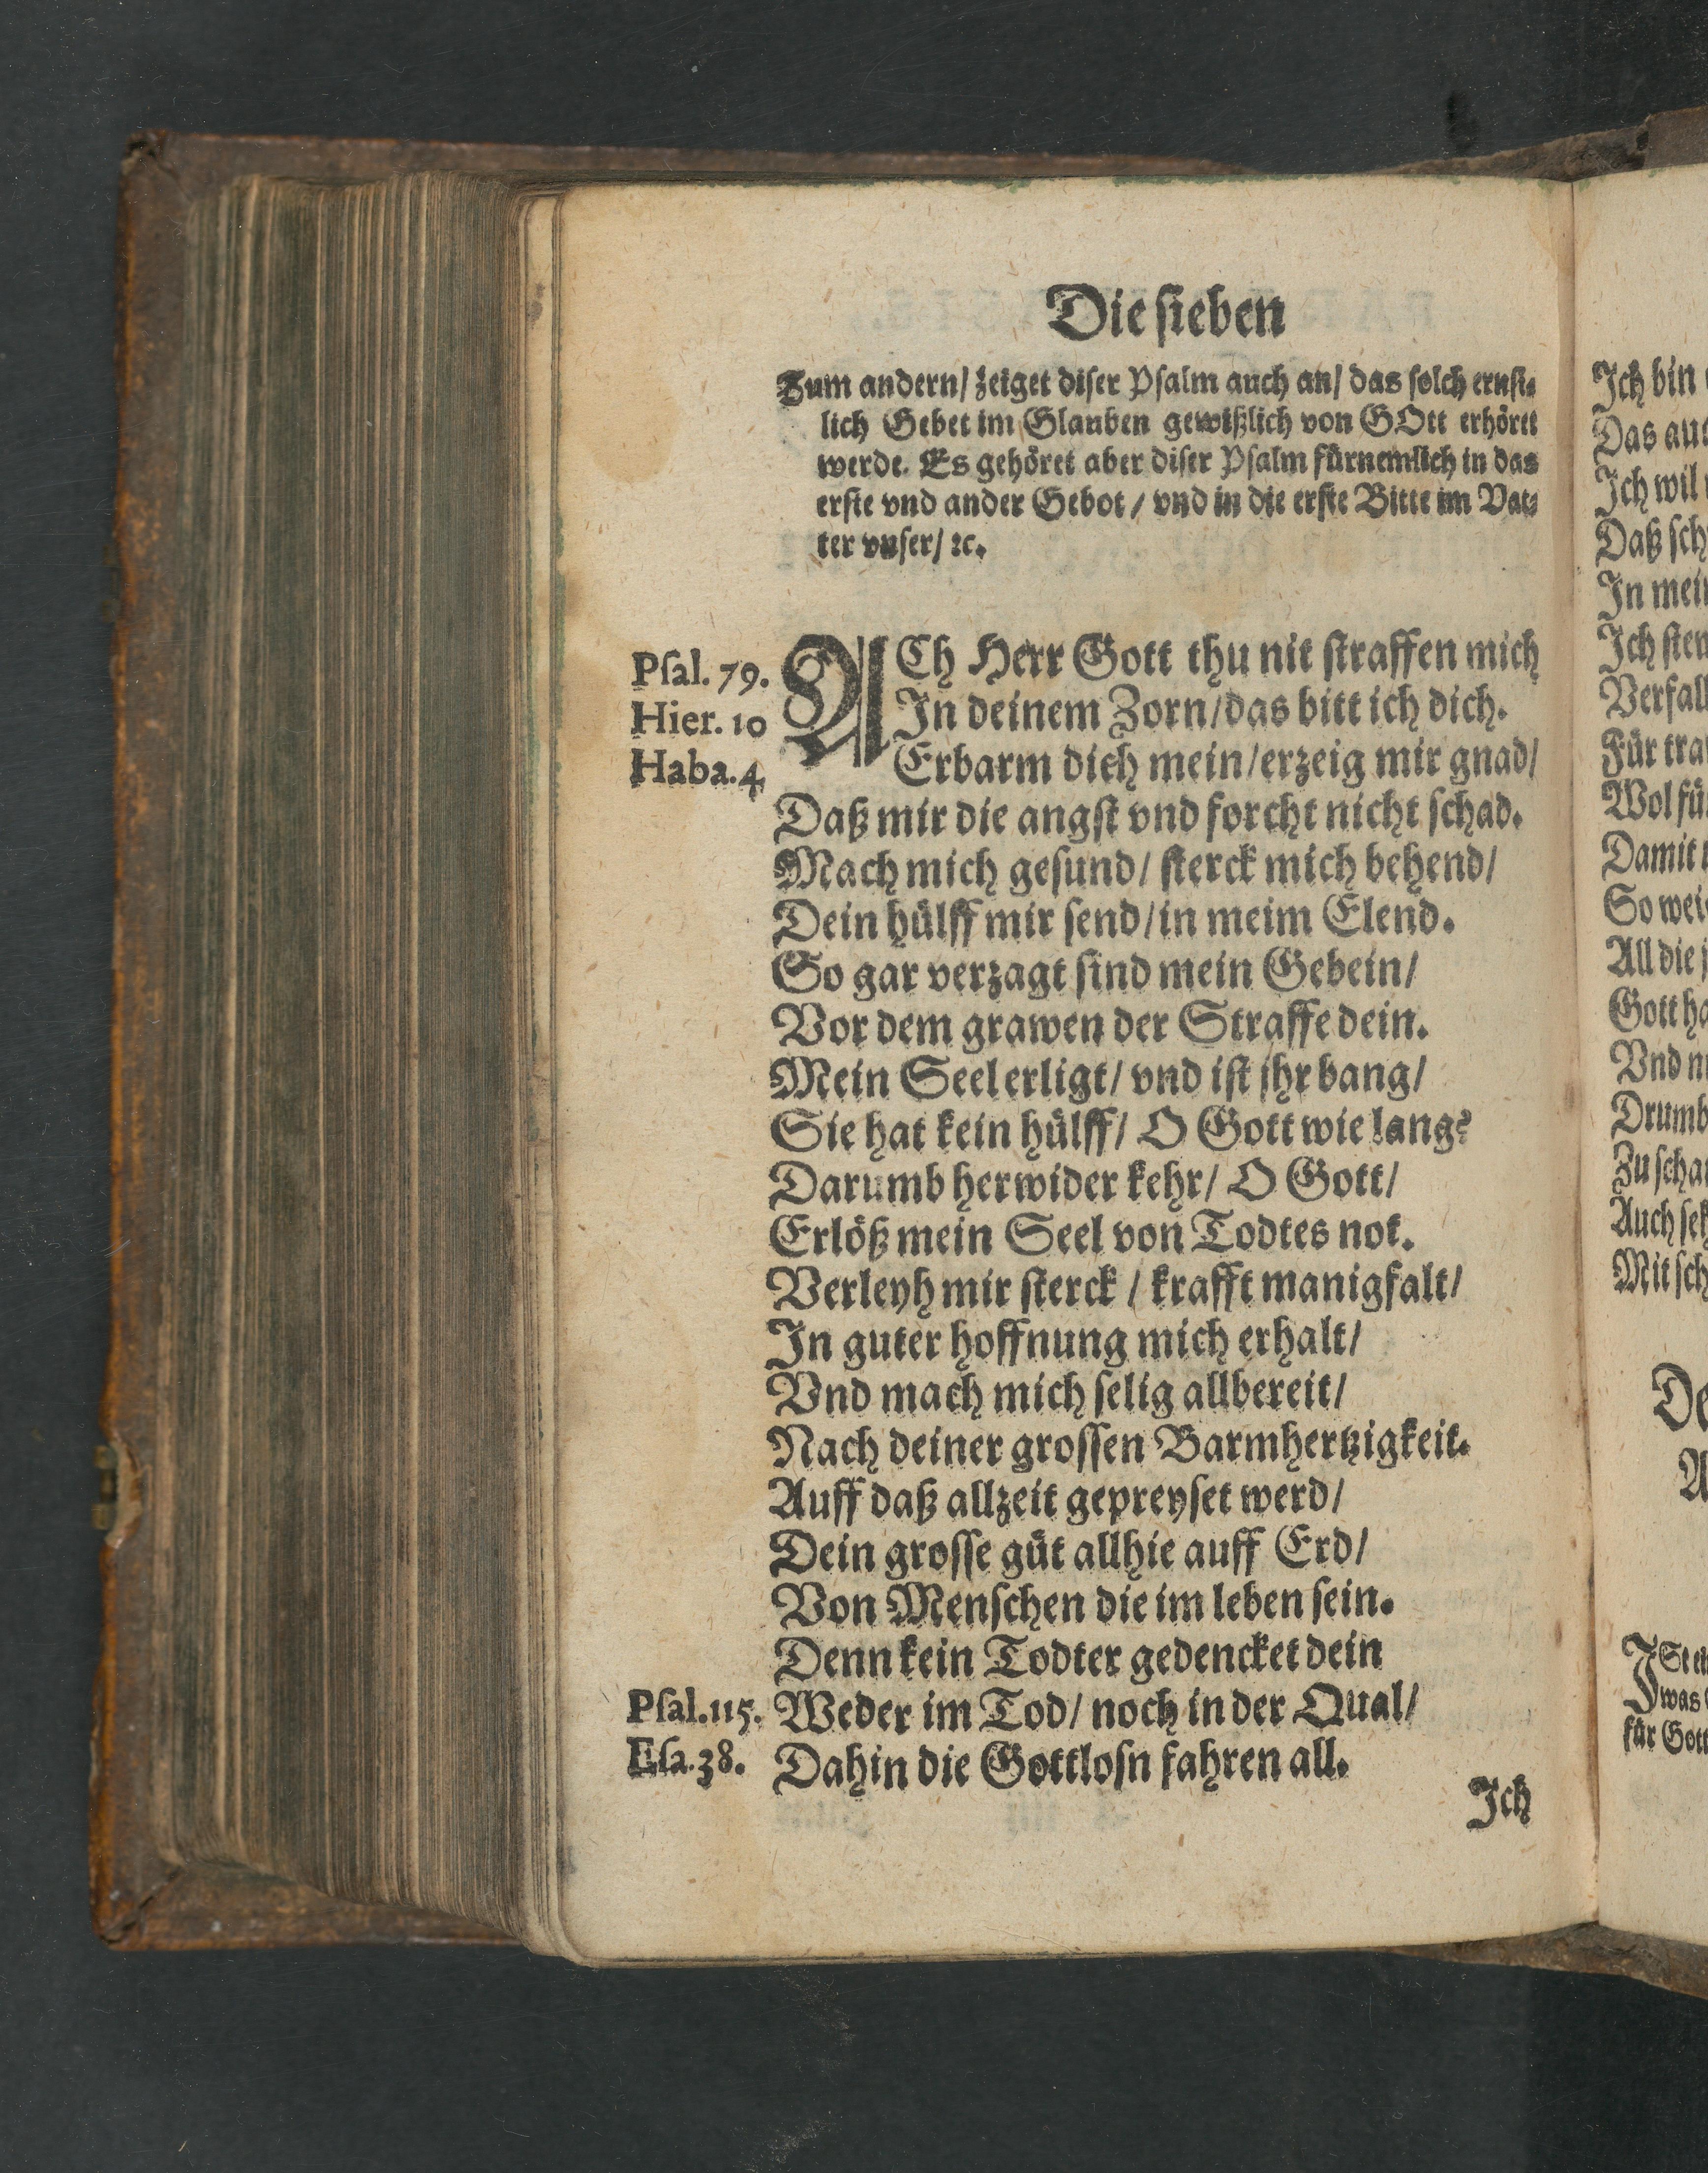 Die ſieben
Zum andern/ zeiget diſer Pſalm auch an/ das ſolch ernſt-
lich Gebet im Glauben gewißlich von GOtt erhöret
werde. Es gehöret aber diſer Pſalm fürnemlich in das
erſte vnd ander Gebot/ vnd in die erſte Bitte im Vat-
ter vnſer/ ꝛc.
Pſal. 79.
Hier. 10
Haba. 4
ACh Herr Gott thu nit ſtraffen mich
In deinem Zorn/das bitt ich dich.
Erbarm dich mein/erzeig mir gnad/
Daß mir die angſt vnd forcht nicht ſchad.
Mach mich geſund/ ſterck mich behend/
Dein hülff mir ſend/in meim Elend.
So gar verzagt ſind mein Gebein/
Vor dem grawen der Straffe dein.
Mein Seel erligt/ vnd iſt jhr bang/
Sie hat kein hülff/ O Gott wie lang?
Darumb herwider kehr/ O Gott/
Erlöß mein Seel von Todtes not.
Verleyh mir ſterck / krafft manigfalt/
In guter hoffnung mich erhalt/
Vnd mach mich ſelig allbereit/
Nach deiner groſſen Barmhertzigkeit.
Auff daß allzeit gepreyſet werd/
Dein groſſe güt allhie auff Erd/
Von Menſchen die im leben ſein.
Denn kein Todter gedencket dein
Pſal. 115. Weder im Tod/ noch in der Qual/
Eſa. 38. Dahin die Gottloſn fahren all.
Ich
Ich bin
Das
Ich wil
Daß
In
Ich
Für
Wol
Damit
So
All die
Gott
Vnd
Drumb
Zu
Auch
Mit
was
für Gott